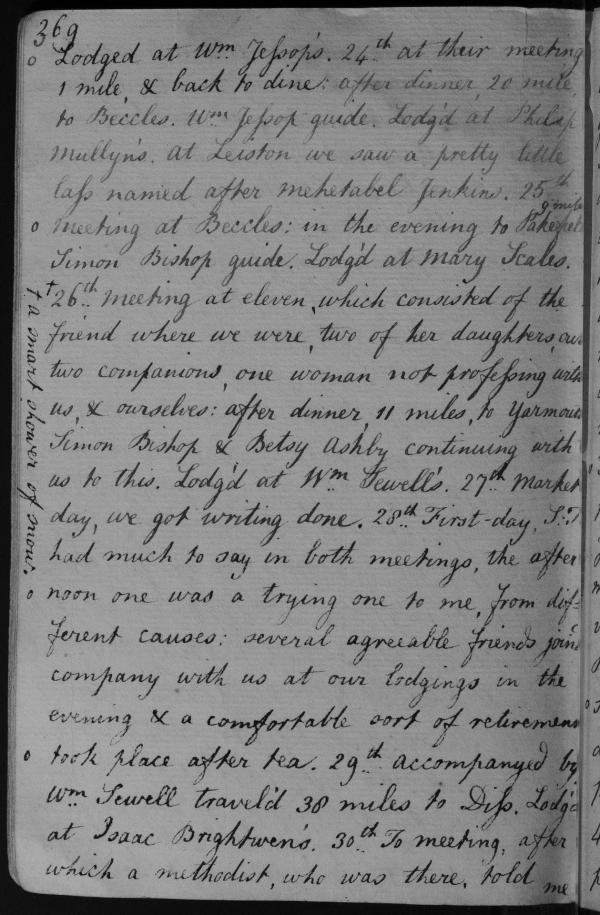 369
Lodged at Wm Jessop's. 24th at their meeting
1 mile, & back to dine: after dinner, 20 mile
to Beccles. Wm Jessop guide. Lodg'd at Philip
Mullyn's. At Leiston we saw a pretty little
lass named after Mehetabel Jenkins. 25th
9 mile
meeting at Beccles: in the evening to Pakefield
Simon Bishop guide. Lodg'd at Mary Scales.
+26th meeting at eleven, which consisted of the
friend where we were, two of her daughters, our
two companions, one woman not professing with
us, & ourselves: after dinner, 11 miles, to Yarmouth
Simon Bishop & Betsy Ashby continuing with
us to this. Lodg'd at Wm Sewell's. 27th Market
day, we got writing done. 28th First-day, S:T
had much to say in both meetings, the after
noon one was a trying one to me, from dif=
ferent causes: several agreeable friends join'd
company with us at our lodgings in the
evening & a comfortable sort of retirement
took place after tea. 29th accompanyed by
Wm Sewell travel'd 38 miles to Diss. Lodg'd
at Isaac Brightwen's. 30th To meeting, after
which a methodist, who was there, told me
+ a smart shower of snow.